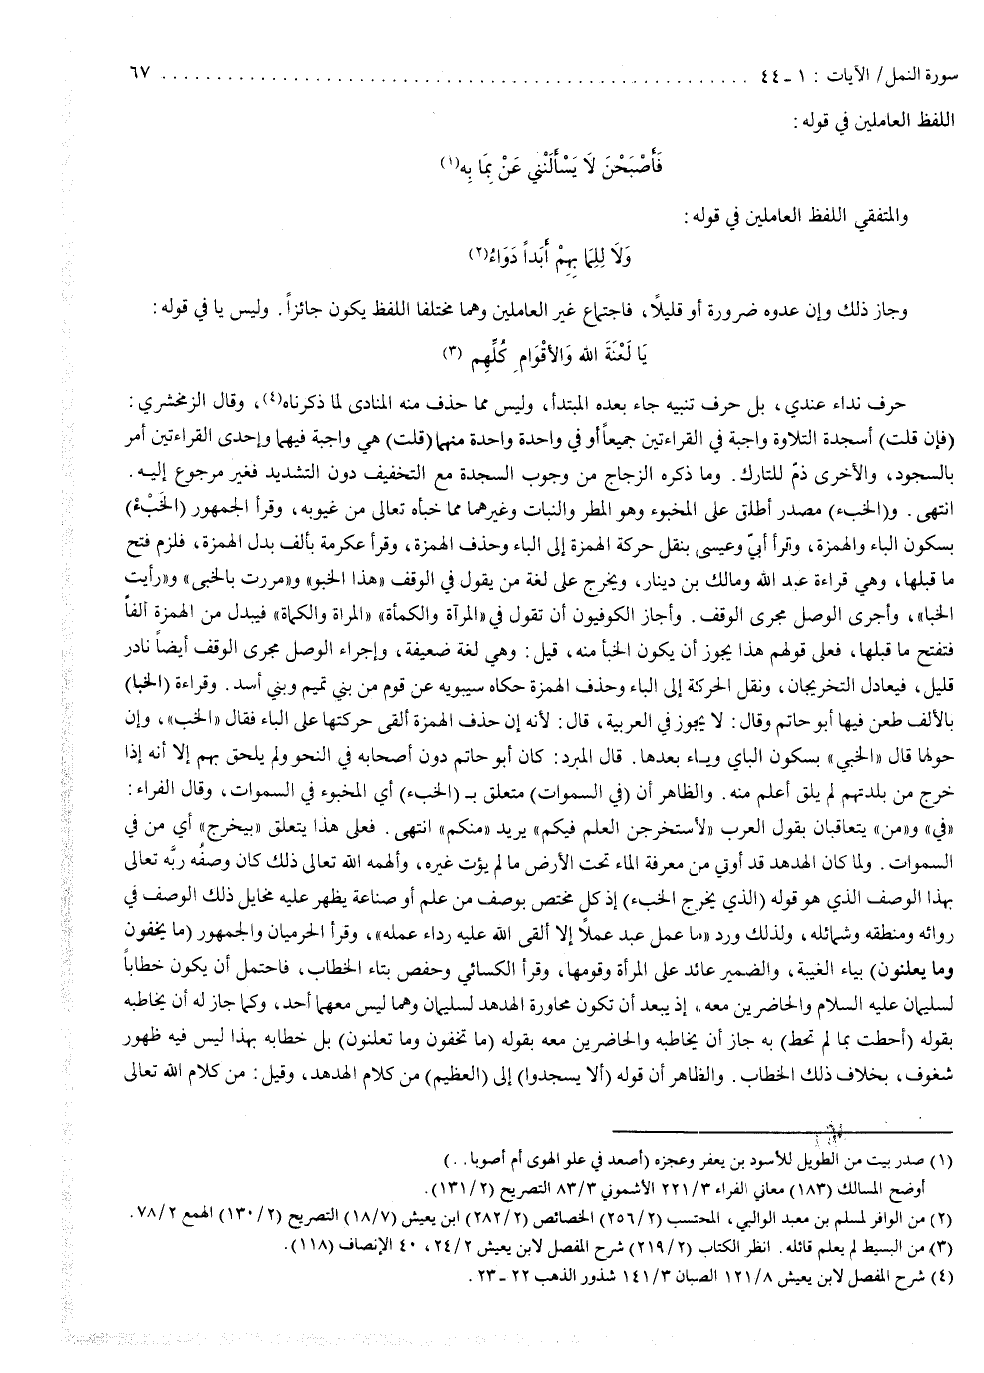 سورة النمل/ الآيات : ١ ـ ٤٤ . . . . . . . . . . . . . . . . . . . . . . . . . . . . . . . . . . . . . . . . . . . . ٦٧
اللفظ العاملين في قوله :
فَأَصْبَحْنَ لَا يَسْأَلْنَنِي عَنْ بِمَا بِه(١)
والمتفقي اللفظ العاملين في قوله :
وَلَا لِلِمَا بِهِمْ أَبَداً دَوَاءُ(٢)
وجاز ذلك وإن عدوه ضرورة أو قليلًا، فاجتماع غير العاملين وهما مختلفا اللفظ يكون جائزاً. وليس يا في قوله :
يَا لَعْنَةَ الله وَالأَقْوَامِ كُلِّهِم (٣)
حرف نداء عندي، بل حرف تنبيه جاء بعده المبتدأ، وليس مما حذف منه المنادى لما ذكرناه(٤)، وقال الزمخشري :
(فإن قلت) أسجدة التلاوة واجبة في القراءتين جميعاً أو في واحدة واحدة منهما (قلت) هي واجبة فيهما وإحدى القراءتين أمر
بالسجود، والأخرى ذمّ للتارك. وما ذكره الزجاج من وجوب السجدة مع التخفيف دون التشديد فغير مرجوع إليه.
انتهى. و(الخبء) مصدر أطلق على المخبوء وهو المطر والنبات وغيرهما مما خبأه تعالى من غيوبه، وقرأ الجمهور (الخَبْءَ)
بسكون الباء والهمزة، وقرأ أبيّ وعيسى بنقل حركة الهمزة إلى الباء وحذف الهمزة، وقرأ عكرمة بألف بدل الهمزة، فلزم فتح
ما قبلها، وهي قراءة عبد الله ومالك بن دينار، ويخرج على لغة من يقول في الوقف «هذا الخبو» و«مررت بالخبي» و«رأيت
الخبا»، وأجرى الوصل مجرى الوقف. وأجاز الكوفيون أن تقول في «المرآة والكمأة» «المراة والكماة» فيبدل من الهمزة ألفاً
فتفتح ما قبلها، فعلى قولهم هذا يجوز أن يكون الخبأ منه، قيل : وهي لغة ضعيفة، وإجراء الوصل مجرى الوقف أيضاً نادر
قليل، فيعادل التخريجان، ونقل الحركة إلى الباء وحذف الهمزة حكاه سيبويه عن قوم من بني تميم وبني أسد. وقراءة (الخبا)
بالألف طعن فيها أبو حاتم وقال : لا يجوز في العربية، قال : لأنه إن حذف الهمزة ألقى حركتها على الباء فقال «الخب»، وإن
حولها قال «الخبي» بسكون الباي وياء بعدها. قال المبرد : كان أبو حاتم دون أصحابه في النحو ولم يلحق بهم إلا أنه إذا
خرج من بلدتهم لم يلق أعلم منه. والظاهر أن (في السموات) متعلق بـ (الخبء) أي المخبوء في السموات، وقال الفراء :
«في» و«من» يتعاقبان بقول العرب «لأستخرجن العلم فيكم» يريد «منكم» انتهى. فعلى هذا يتعلق «بيخرج» أي من في
السموات. ولما كان الهدهد قد أوتي من معرفة الماء تحت الأرض ما لم يؤت غيره، وألهمه الله تعالى ذلك كان وصفُه ربَّه تعالى
بهذا الوصف الذي هو قوله (الذي يخرج الخبء) إذ كل مختص بوصف من علم أو صناعة يظهر عليه مخايل ذلك الوصف في
روائه ومنطقه وشمائله، ولذلك ورد «ما عمل عبد عملًا إلا ألقى الله عليه رداء عمله»، وقرأ الحرميان والجمهور (ما يخفون
وما يعلنون) بياء الغيبة، والضمير عائد على المرأة وقومها، وقرأ الكسائي وحفص بتاء الخطاب، فاحتمل أن يكون خطاباً
لسليمان عليه السلام والحاضرين معه، إذ يبعد أن تكون محاورة الهدهد لسليمان وهما ليس معهما أحد، وكما جاز له أن يخاطبه
بقوله (أحطت بما لم تحط) به جاز أن يخاطبه والحاضرين معه بقوله (ما تخفون وما تعلنون) بل خطابه بهذا ليس فيه ظهور
شغوف، بخلاف ذلك الخطاب. والظاهر أن قوله (ألا يسجدوا) إلى (العظيم) من كلام الهدهد، وقيل : من كلام الله تعالى
(١) صدر بيت من الطويل للأسود بن يعفر وعجزه (أصعد في علو الهوى أم أصوبا . .)
أوضح المسالك (١٨٣) معاني الفراء ٣/ ٢٢١ الأشموني ٣/ ٨٣ التصريح (٢/ ١٣١).
(٢) من الوافر لمسلم بن معبد الوالبي، المحتسب (٢/ ٢٥٦) الخصائص (٢/ ٢٨٢) ابن يعيش (٧/ ١٨) التصريح (٢/ ١٣٠) الهمع ٢/ ٧٨.
(٣) من البسيط لم يعلم قائله. انظر الكتاب (٢/ ٢١٩) شرح المفصل لابن يعيش ٢/ ٢٤، ٤٠ الإنصاف (١١٨).
(٤) شرح المفصل لابن يعيش ٨/ ١٢١ الصبان ٣/ ١٤١ شذور الذهب ٢٢ ـ ٢٣.